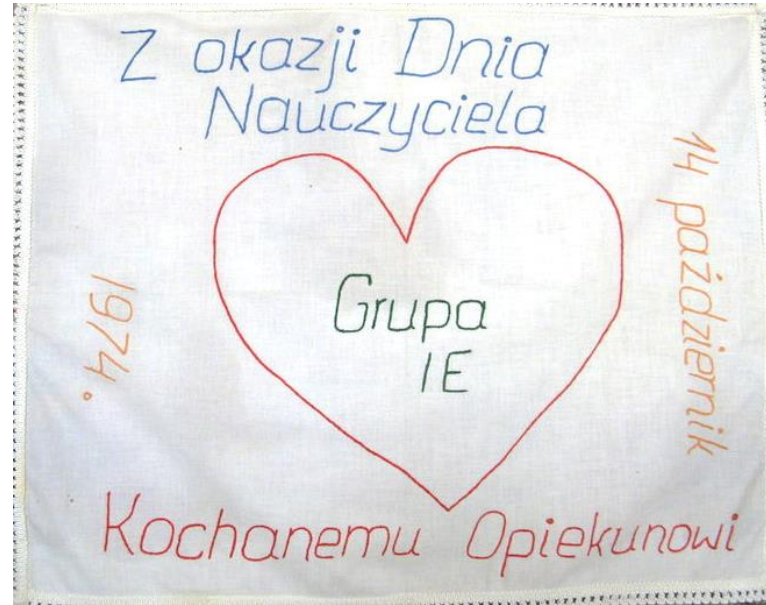 Z okazji Dnia
Nauczyciela
14 październik
1974.
Grupa
IE
Kochanemu Opiekunowi